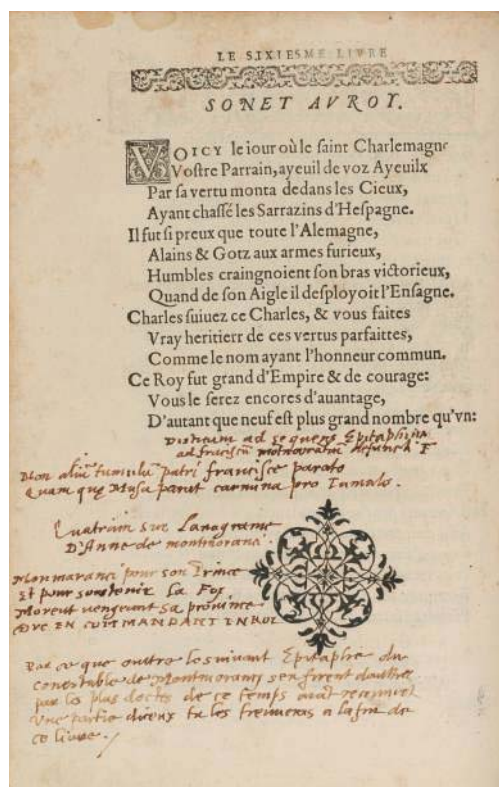 LE SIXIESME LIVRE
SONET AV ROY.
VOICY le iour où le ſaint Charlemagne
Voſtre Parrain, ayeuil de voz Ayeuilx
Par ſa vertu monta dedans les Cieux,
Ayant chaſſé les Sarrazins d'Heſpagne.
Il fut ſi preux que toute l'Alemagne,
Alains & Gotz aux armes furieux,
Humbles craingnoient ſon bras victorieux,
Quand de ſon Aigle il deſployoit l'Enſagne.
Charles ſuiuez ce Charles, & vous faites
Vray heritierr de ces vertus parfaittes,
Comme le nom ayant l'honneur commun.
Ce Roy fut grand d'Empire & de courage:
Vous le ſerez encores d'auantage,
D'autant que neuf eſt plus grand nombre qu'vn:
Distichum ad sequens Epitaphium
ad
Non aliū tumulū patri francisce parato
Quam quę Musa parut carmina pro Tumulo.
Quatrain sur Lanagrame
D'Anne de montmoranci
Monmaranci pour son Prince
Et pour soustenir la Foy
Moreut vengeant sa prouince
Par ce que outre le suiuant Epitaphe du
conestable de Montmoranci sen firent dautres
par les plus doctes de ce temps
Vne partie diceux tu les treuueras a la fin de
ce liure.